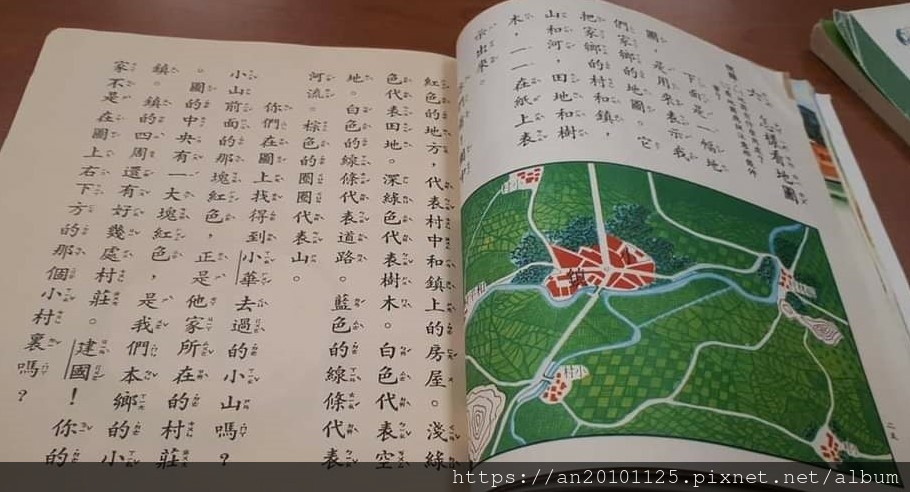 怎樣看地圖
下面是一幅地
圖，是用來表示我
們家鄉的地圖。它
把家鄉的村和鎮，
山和河，田地和樹
木，一一在紙上表
示出來。
小鎮
小村
小村
二五
紅色的地方，代表村中和鎮上的房屋。淺綠
色代表田地。深綠色代表樹木。白色代表空
地。白色的線條代表道路。藍色的線條代表
河流。棕色的圈圈代表山。
你們在圖上找得到小華去過的小山嗎？
小山前面的那塊紅色，正是他家所在的村莊
。圖的中央有一大塊紅色，是我們本鄉的小
鎮。鎮的四周還有好幾處村莊。建國！你的
家不是在圖上右下方的那個小村裏嗎？
https://an20101125.pixnet.net/album